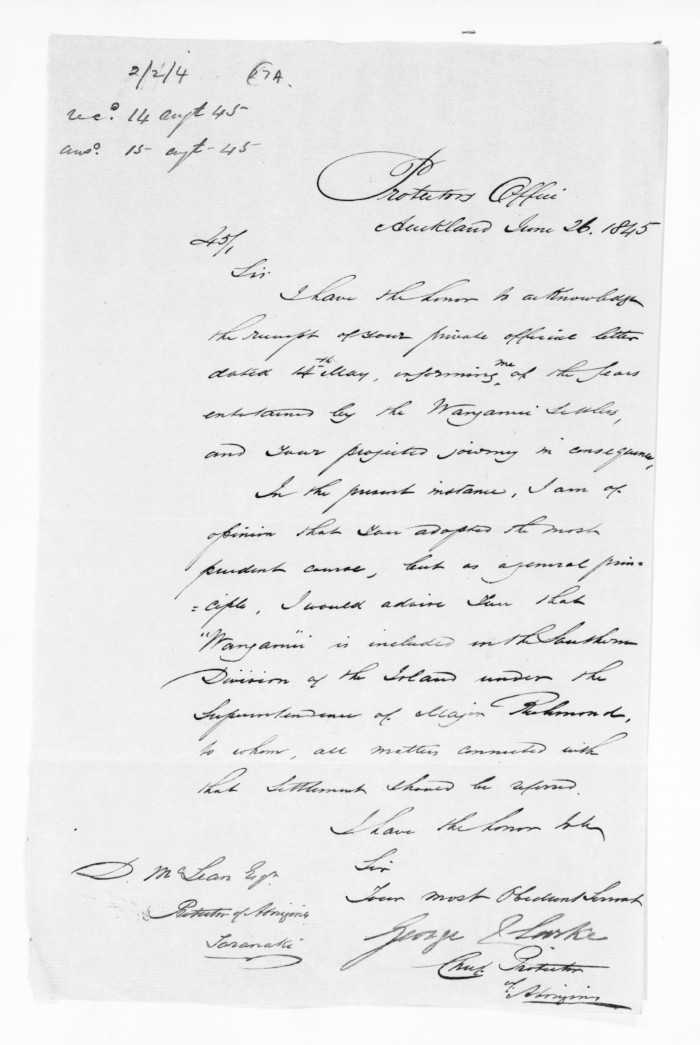 2/2/4 67A.
recd. 14 augt 45
ansd. 15 augt - 45
Protectors Office
Auckland June 26. 1845
45/1
Sir
I have the honor to acknowledge
the receipt of your private official letter
dated 14th May, informing me of the fears
entertained by the Wanganui Settlers,
and your projected journey in consequence,
In the present instance, I am of
opinion that you adopted the most
prudent course, but as a general prin=
=ciple, I would advise you that
"Wanganui" is included in the Southern
Division of the Island under the
Superintendence of Major Richmond,
to whom, all matters connected with
that Settlement should be referred.
I have the honor to be
Sir
Your most Obedient Servant
George Clarke
Chief Protector
of Aborigines
D. McLean Esqr.
Protector of Aborigines
Taranaki